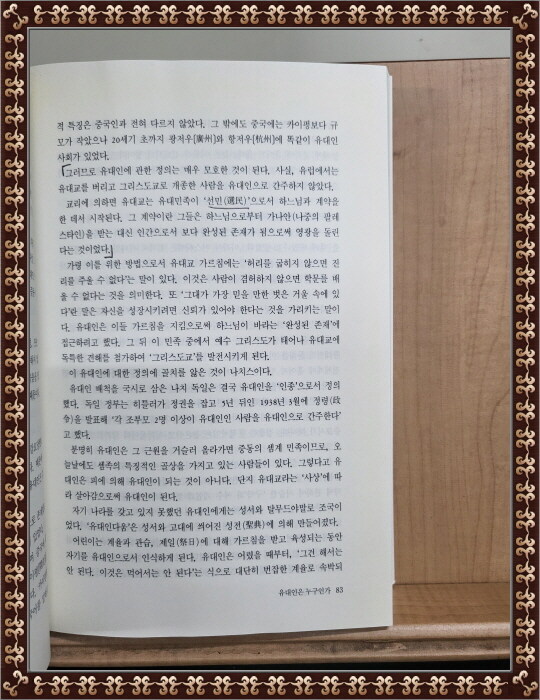 적 특징은 중국인과 전혀 다르지 않았다. 그 밖에도 중국에는 카이펑보다 규
모가 작았으나 20세기 초까지 광저우[廣州]와 항저우[杭州]에 똑같이 유대인
사회가 있었다.
「그러므로 유대인에 관한 정의는 매우 모호한 것이 된다. 사실, 유럽에서는
유대교를 버리고 그리스도교로 개종한 사람을 유대인으로 간주하지 않았다.
교리에 의하면 유대교는 유대민족이 '선민(選民)'으로서 하느님과 계약을
한 데서 시작된다. 그 계약이란 그들은 하느님으로부터 가나안(나중의 팔레
스타인)을 받는 대신 인간으로서 보다 완성된 존재가 됨으로써 영광을 돌린
다는 것이었다.」
가령 이를 위한 방법으로서 유대교 가르침에는 '허리를 굽히지 않으면 진
리를 주울 수 없다'는 말이 있다. 이것은 사람이 겸허하지 않으면 학문를 배
울 수 없다는 것을 의미한다. 또 '그대가 가장 믿을 만한 벗은 거울 속에 있
다'란 말은 자신을 성장시키려면 신뢰가 있어야 한다는 것을 가리키는 말이
다. 유대인은 이들 가르침을 지킴으로써 하느님이 바라는 '완성된 존재'에
접근하려고 했다. 그 뒤 이 민족 중에서 예수 그리스도가 태어나 유대교에
독특한 견해를 첨가하여 '그리스도교'를 발전시키게 된다.
이 유대인에 대한 정의에 골치를 앓은 것이 나치스이다.
유대인 배척을 국시로 삼은 나치 독일은 결국 유대인을 '인종'으로서 정의
했다. 독일 정부는 히틀러가 정권을 잡고 5년 뒤인 1938년 3월에 정령(政
令)을 발표해 '각 조부모 2명 이상이 유대인인 사람을 유대인으로 간주한다'
고 했다.
분명히 유대인은 그 근원을 거슬러 올라가면 중동의 셈계 민족이므로, 오
늘날에도 셈족의 특징적인 골상을 가지고 있는 사람들이 있다. 그렇다고 유
대인은 피에 의해 유대인이 되는 것이 아니다. 단지 유대교라는 '사상'에 따
라 살아감으로써 유대인이 된다.
자기 나라를 갖고 있지 못했던 유대인에게는 성서와 탈무드야말로 조국이
었다. '유대인다움'은 성서와 고대에 씌어진 성전(聖典)에 의해 만들어졌다.
어린이는 계율과 관습, 제일(祭日)에 대해 가르침을 받고 육성되는 동안
자기를 유대인으로서 인식하게 된다. 유대인은 어렸을 때부터, '그건 해서는
안 된다. 이것은 먹어서는 안 된다'는 식으로 대단히 번잡한 계율로 속박되
유대인은 누구인가 83